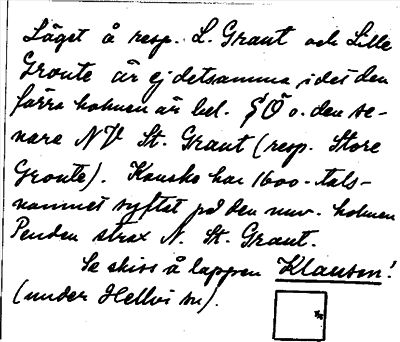 Läget å resp. L. Graut och Lille
Groute är ej detsamma, i det den
förra holmen är bel. S Ö o. den se-
nare NV St. Graut (resp. Store
Groute). Kanske har 1600-tals-
namnet syftat på den nuv. holmen
Penden strax N. St. Graut.
Se skiss å lappen Klausen!
(under Hellvi sn).